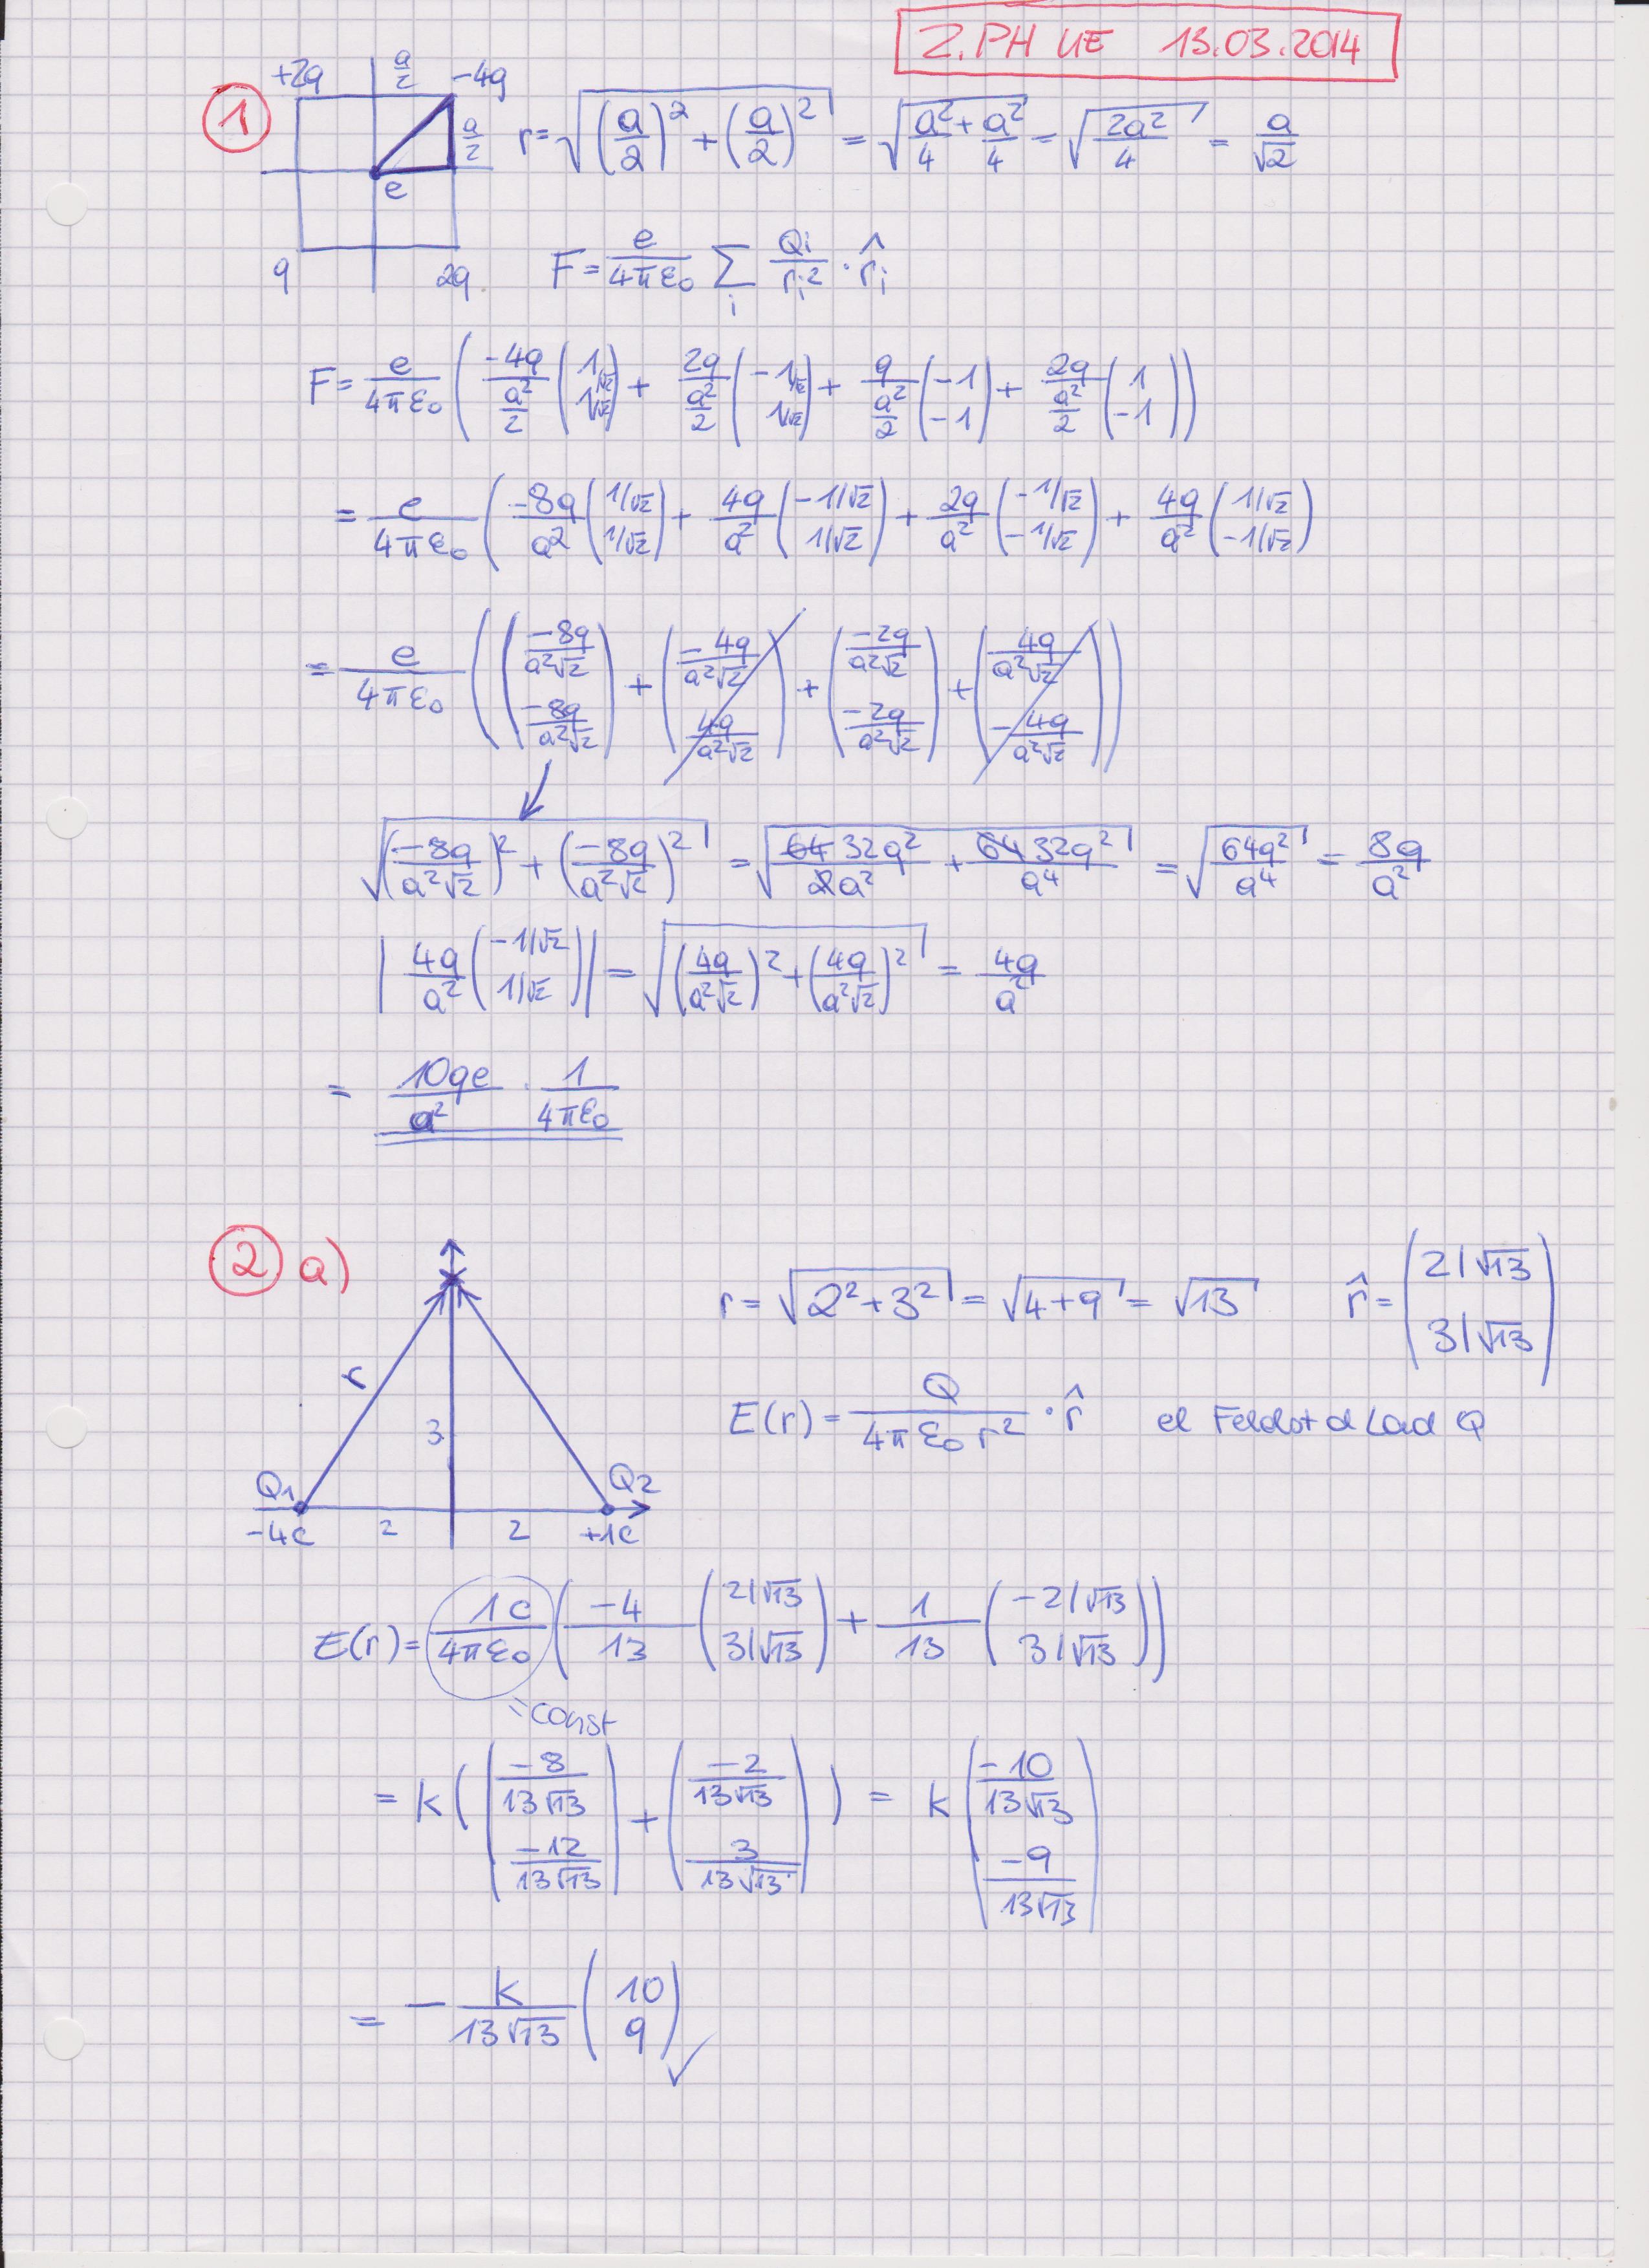 2.PH UE 13.03.2014
1
+2q a/2 -4q
a/2
e
q 2q
r = √((a/2)² + (a/2)²) = √(a²/4 + a²/4) = √(2a²/4) = a/√2
F = e/(4πε₀) Σᵢ Qi/rᵢ² · r̂ᵢ
F = e/(4πε₀) (-4q/(a²/2) (1/√2 1/√2) + 2q/(a²/2) (-1/√2 1/√2) + q/(a²/2) (-1 -1) + 2q/(a²/2) (1 -1))
= e/(4πε₀) (-8q/a² (1/√2 1/√2) + 4q/a² (-1/√2 1/√2) + 2q/a² (-1/√2 -1/√2) + 4q/a² (1/√2 -1/√2)
= e/(4πε₀) ((-8q/(a²√2) -8q/(a²√2)) + (-4q/(a²√2) 4q/(a²√2)) + (-2q/(a²√2) -2q/(a²√2)) + (4q/(a²√2) -4q/(a²√2)))
√((-8q/(a²√2))² + (-8q/(a²√2))²) = √(64 32q²/(2a²) + 64 32q²/a⁴) = √(64q²/a⁴) = 8q/a²
|4q/a² (-1/√2 1/√2)| = √((4q/(a²√2))² + (4q/(a²√2))²) = 4q/a²
= 10qe/a² · 1/(4πε₀)
2 a)
r
3
Q1 Q2
-4C 2 2 +1C
r = √(2²+3²) = √(4+9) = √13 r̂ = (2/√13 3/√13)
E(r) = Q/(4πε₀r²) · r̂ el Feldst d Lad Q
E(r) = 1C/(4πε₀) (-4/13 (2/√13 3/√13) + 1/13 (-2/√13 3/√13))
=const
= k((-8/(13√13) -12/(13√13)) + (-2/(13√13) 3/(13√13))) = k(-10/(13√13) -9/(13√13))
= -k/(13√13) (10 9) ✓